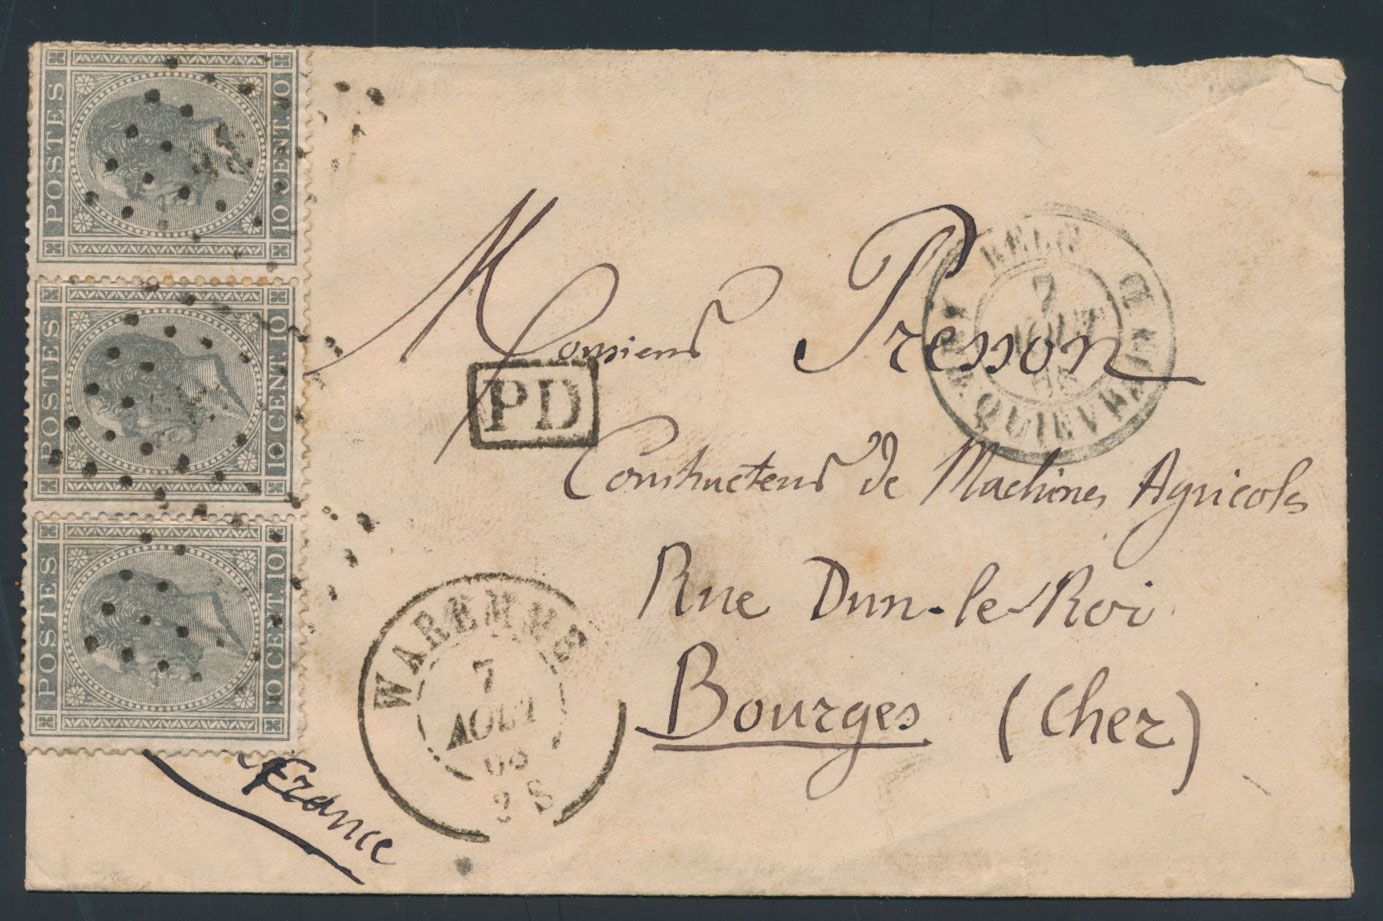 POSTES 10 CENT. 10
POSTES 10 CENT. 10
POSTES 10 CENT. 10
Monsieur Presson
PD
BELG
7
AOUT
68
QUIEVRAIN
Constructeur de Machines Agricoles
Rue Dun-le-Roi
Bourges (Cher)
WAREMME
7
AOUT
68
2 S
France